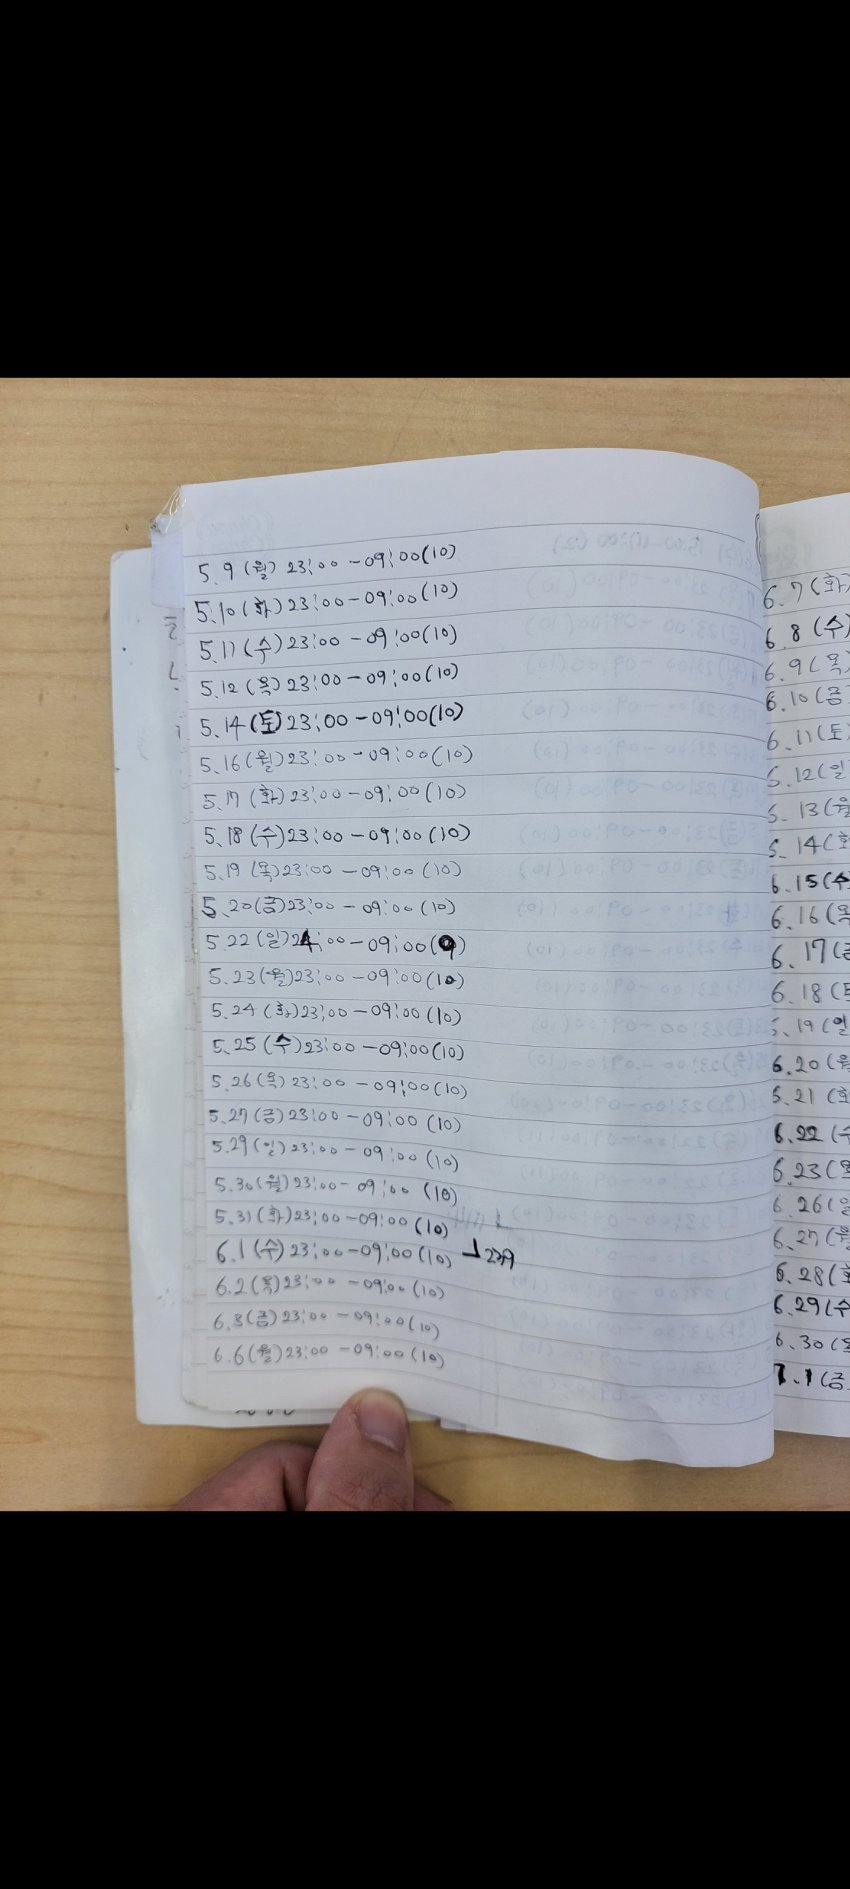 5.9 (월) 23:00-09:00(10)
5.10(화) 23:00-09:00(10)
5.11(수) 23:00-09:00(10)
5.12(목) 23:00-09:00(10)
5.14(토) 23:00-09:00(10)
5.16(월) 23:00-09:00(10)
5.17(화) 23:00-09:00(10)
5.18(수) 23:00-09:00(10)
5.19(목) 23:00-09:00(10)
5.20(금) 23:00-09:00(10)
5.22(일) 24:00-09:00(9)
5.23(월) 23:00-09:00(10)
5.24(화) 23:00-09:00(10)
5.25(수) 23:00-09:00(10)
5.26(목) 23:00-09:00(10)
5.27(금) 23:00-09:00(10)
5.29(일) 23:00-09:00(10)
5.30(월) 23:00-09:00(10)
5.31(화) 23:00-09:00(10)
6.1(수) 23:00-09:00(10)
6.2(목) 23:00-09:00(10)
6.3(금) 23:00-09:00(10)
6.6(월) 23:00-09:00(10)
6.7(화)
6.8(수)
6.9(목
6.10(금
6.11(토
6.12(일
6.13(월
6.14(화
6.15(수
6.16(목
6.17(금
6.18(토
6.19(일
6.20(월
6.21(화
6.22(수
6.23(목
6.26(일
6.27(월
6.28(화
6.29(수
6.30(목
7.1(금